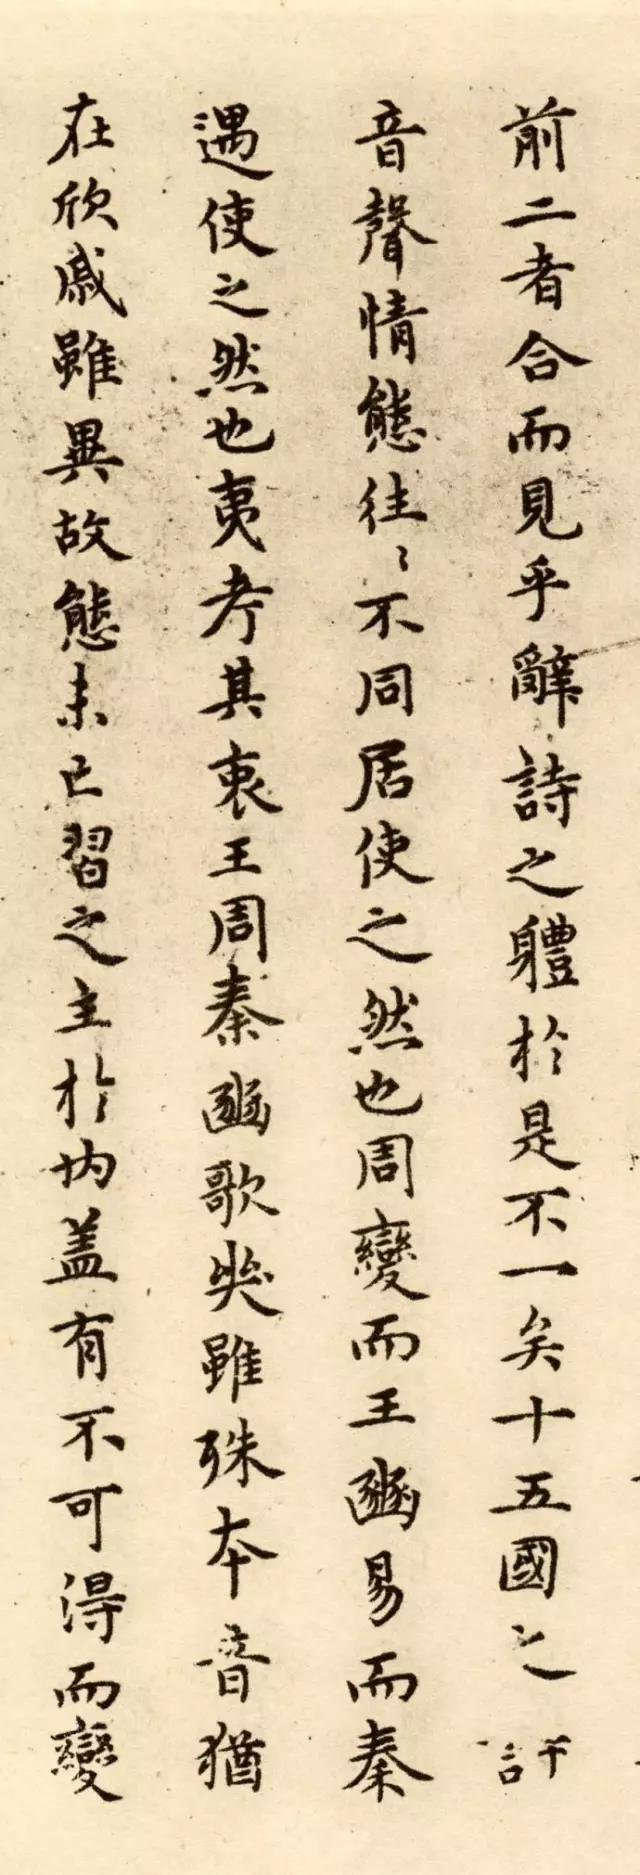 前二者合而見乎辭詩之軆於是不一矣十五國之
音聲情態往〻不同居使之然也周變而王豳易而秦
遇使之然也夷考其衷王周秦豳歌哭雖殊本音猶
在欣戚雖異故態未已習之主於内盖有不可得而變